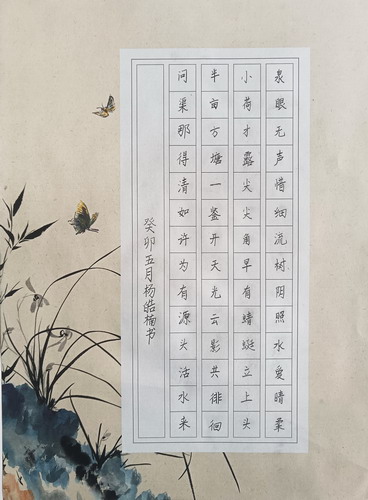 泉眼无声惜细流树阴照水爱晴柔
小荷才露尖尖角早有蜻蜓立上头
半亩方塘一鉴开天光云影共徘徊
问渠那得清如许为有源头活水来
癸卯五月杨皓楠书